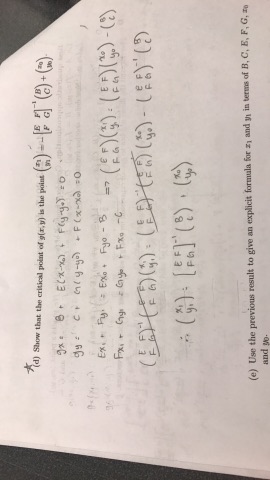 *(d) Show that the critical point of g(x, y) is the point (x₁ y₁) = −[E F F G]⁻¹ (B C) + (x₀ y₀).
gx = B + E(x-x₀) + F(y-y₀) = 0
gy = C + G(y-y₀) + F(x-x₀) = 0
Ex₁ + Fy₁ = Ex₀ + Fy₀ - B => (E F F G)(x₁ y₁) = (E F F G)(x₀ y₀) - (B C)
Fx₁ + Gy₁ = Gy₀ + Fx₀ - C
(E F F G)⁻¹ (E F F G)(x₁ y₁) = (E F F G)⁻¹ (E F F G)(x₀ y₀) - (E F F G)⁻¹ (B C)
∴ (x₁ y₁) = [E F F G]⁻¹ (B C) + (x₀ y₀)
(e) Use the previous result to give an explicit formula for x₁ and y₁ in terms of B, C, E, F, G, x₀
and y₀.